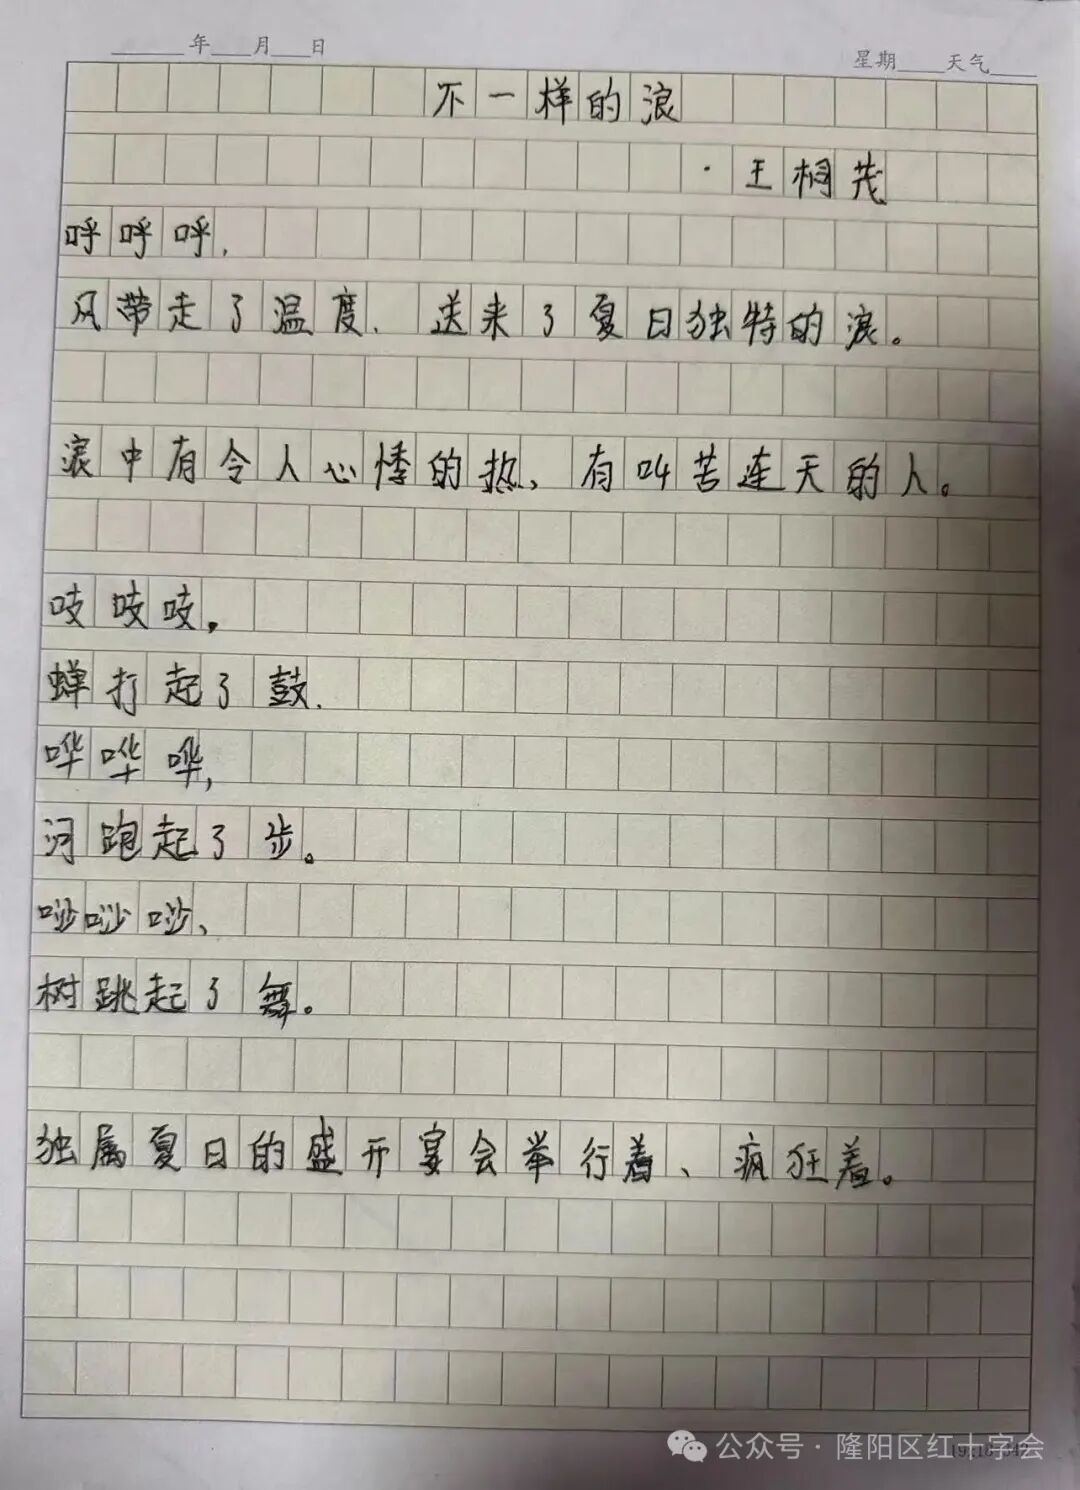 年 月 日 星期 天气
不一样的浪
·王桐茂
呼呼呼,
风带走了温度、送来了夏日独特的浪。
浪中有令人心悸的热、有叫苦连天的人。
吱吱吱,
蝉打起了鼓、
哗哗哗,
河跑起了步。
唦唦唦、
树跳起了舞。
独属夏日的盛开宴会举行着、疯狂着。
公众号·隆阳区红十字会